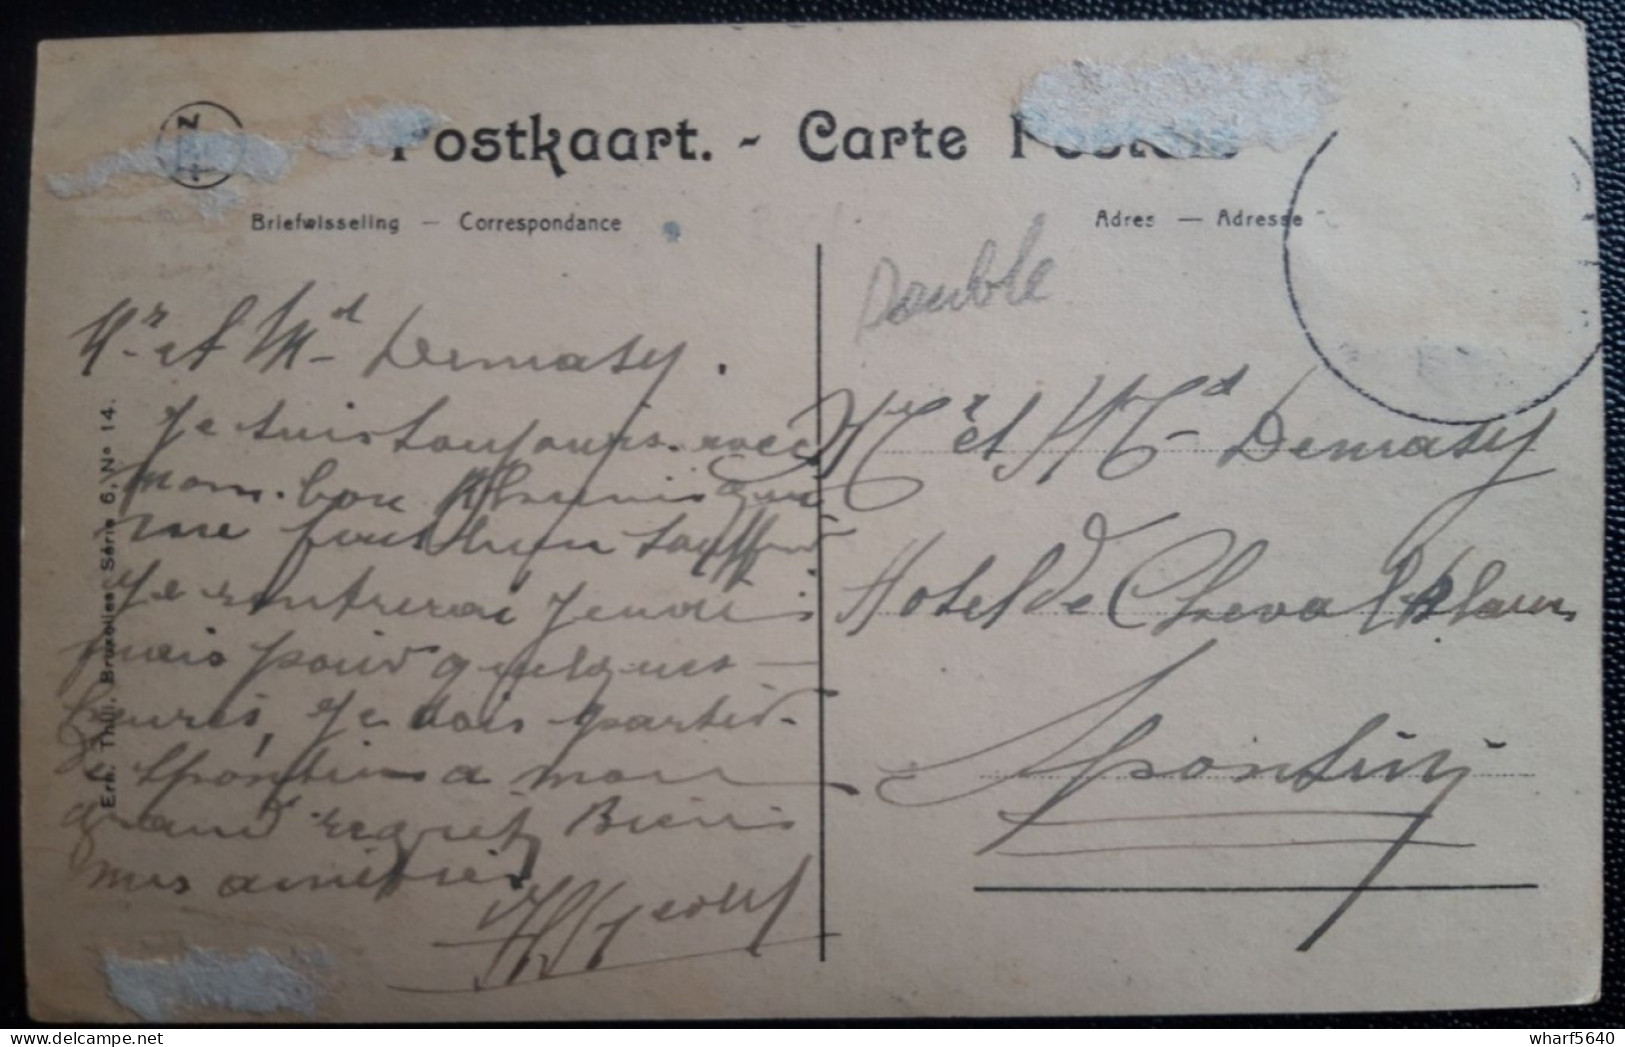 Postkaart. - Carte Postale
Briefwisseling — Correspondance
Adres — Adresse
Double
Mr et Md Demasy.
Je suis toujours avec
mon bon
me font bien
Je rentrerai Jeudi
mais pour quelques
heures, Je dois partir
de Spontin a mon
grand regret Biens
mes amitiés
Mr et Md Demasy
Hotel de Cheval Blanc
Spontin
Ern. Thill, Bruxelles Série 6, No 14.
wharf5640